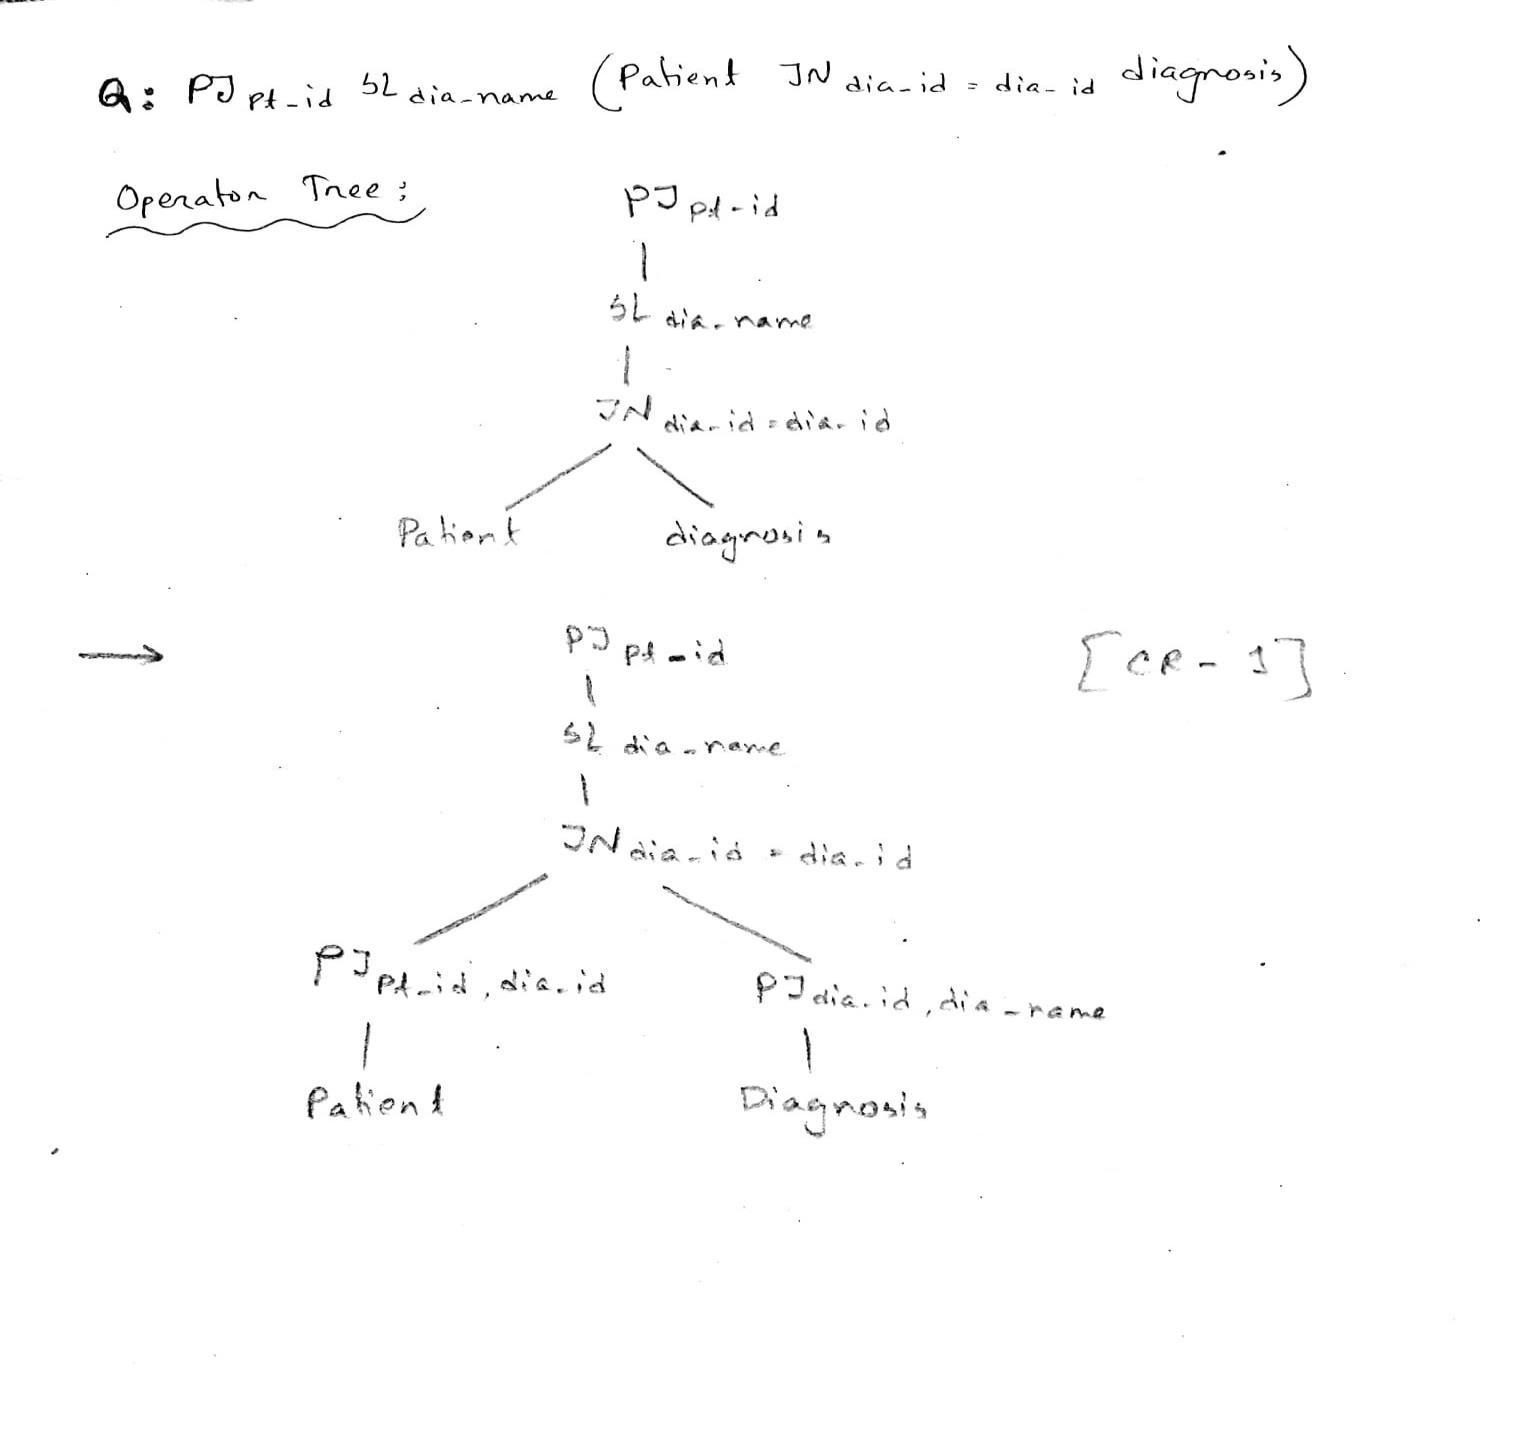 Q: PJ pt-id SL dia-name (Patient JN dia-id = dia-id diagnosis)
Operator Tree:
PJ pt-id
SL dia-name
JN dia-id = dia-id
Patient diagnosis
PJ pt-id [CR-1]
SL dia-name
JN dia-id = dia-id
PJ pt-id, dia-id PJ dia-id, dia-name
Patient Diagnosis